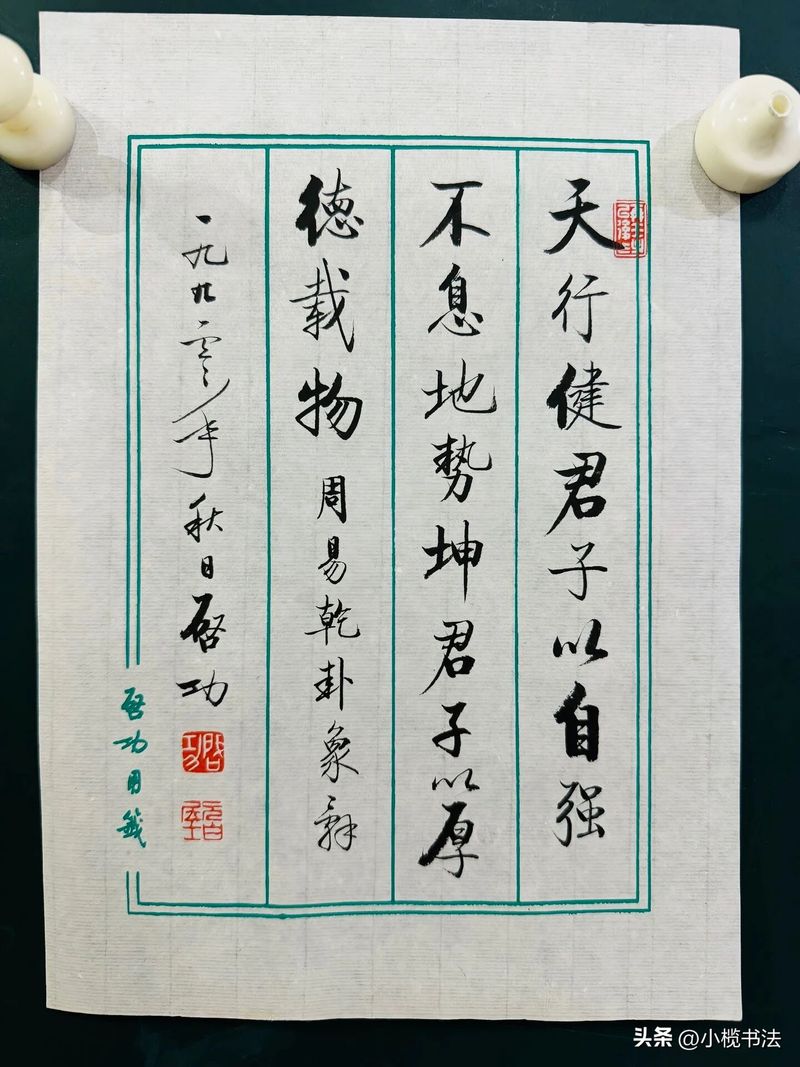 天行健君子以自强
不息地势坤君子以厚
德载物 周易乾卦象辞
一九九零年秋日启功
启功
启功用笺
头条 @小榄书法